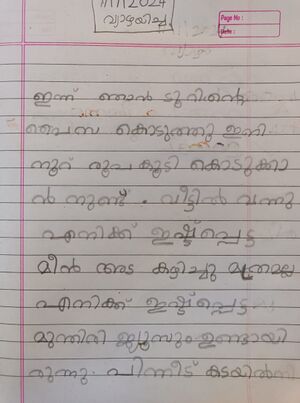 11/11/2024
വ്യാഴായിച്ച
Page No :
Date :
ഇന്ന് ഞാൻ ടൂറിന്റെ
പൈസ കൊടുത്തു ഇനി
നൂറ് രൂപ കൂടി കൊടുക്കാ
ൻ നുണ്ട് . വീട്ടിൽ വന്നു
എനിക്ക് ഇഷ്ട്ടപ്പെട്ട
മീൻ അട കഴിച്ചു മത്രമല്ല
എനിക്ക് ഇഷ്ട്ടപ്പെട്ട
മുന്തിരി ജ്യൂസും ഉണ്ടായി
രുന്നു. പിന്നീട് കടയിൽനി